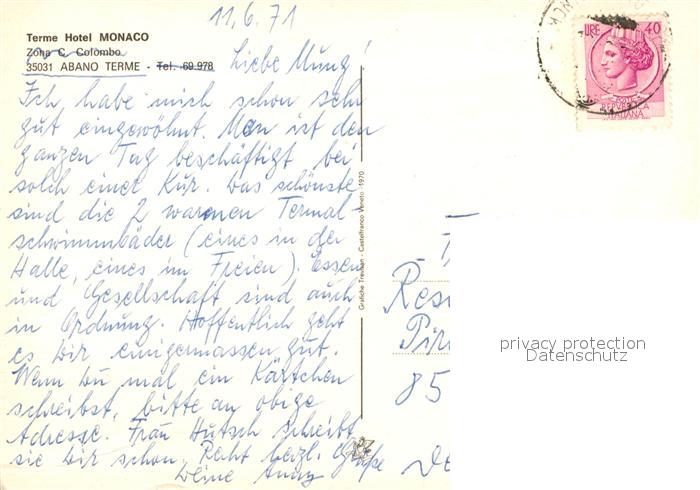 11.6.71
Terme Hotel MONACO
Zona C. Colombo
35031 ABANO TERME - Tel. 69.978
Liebe Mung!
Ich habe mich schon sehr
gut eingewöhnt. Man ist den
ganzen Tag beschäftigt bei
solch einer Kur. Das schönste
sind die 2 warmen Termal-
schwimmbäder (eines in der
Halle, eines im Freien). Essen
und Gesellschaft sind auch
in Ordnung. Hoffentlich geht
es Dir einigermassen gut.
Wenn Du mal ein Kärtchen
schreibst, bitte an obige
Adresse. Frau Hutsch schreibt
sie Dir schon. Recht herzl. Grüße
Deine Anny
Grafiche Trevisan - Castelfranco Veneto - 1970
LIRE 40
POSTE
REPVBBLICA
ITALIANA
Resi
Pir
85
privacy protection
Datenschutz